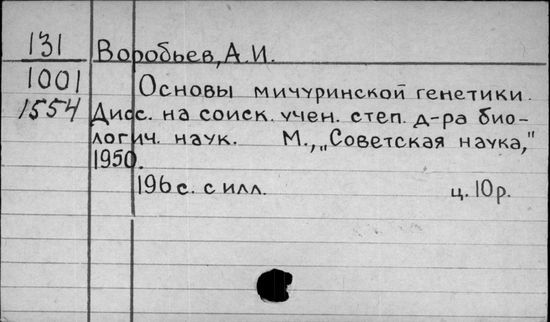 131 Воробьев, А.И.
1001 Основы мичуринской генетики.
1554 Дисс. на соиск. учен. степ. д-ра био-
логич. наук. М., „Советская наука,"
1950.
196 с. с илл. ц. 10 р.